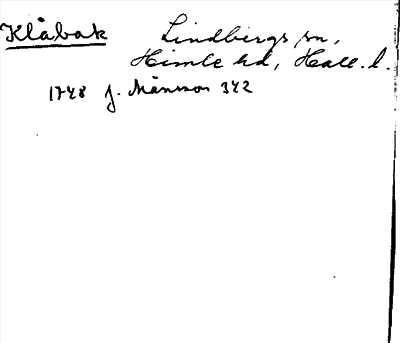 Klåbak Lindbergs sn,
Himle hd, Hall. l.
1748 J. Månsson 342